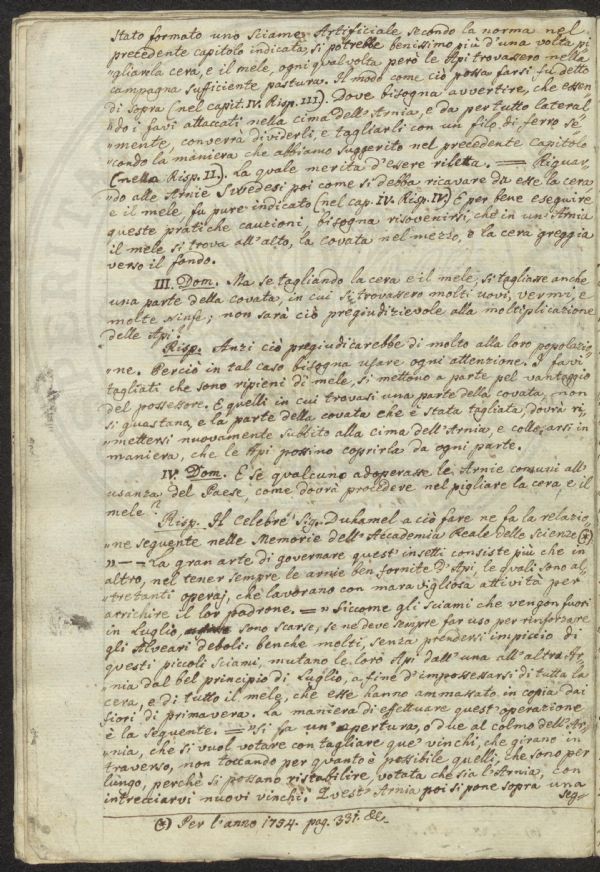 stato formato uno Sciame Artificiale, secondo la norma nel
precedente capitolo indicata, si potrebbe benissimo più d'una volta pi
„gliarsela cera, e il mele, ogni qualvolta però le Api trovassero nella
campagna sufficiente pastura. Il modo come ciò possa farsi fu detto
di sopra (nel capit. IV. Risp. III.). Dove bisogna avvertire, che essen
„do i favi attaccati nella cima dell'Arnia, e da per tutto lateral
„mente, converrà dividerli, e tagliarli con un filo di ferro se
„condo la maniera che abbiamo suggerito nel precedente capitolo
(nella Risp. II.). La quale merita d'essere riletta. == Riguar
„do alle Arnie Svedesi poi come si debba ricavare da esse la cera
e il mele, fu pure indicato (nel cap. IV. Risp. IV.) E per bene eseguire
queste pratiche cauzioni, bisogna risovenirsi, che in un'Arnia
il mele si trova all'alto, la covata nel mezzo, e la cera greggia
verso il fondo.
III. Dom. Ma se tagliando la cera e il mele, si tagliasse anche
una parte della covata, in cui si trovassero molti uovi, vermi, e
molte Ninfe; non sarà ciò pregiudizievole alla moltiplicazione
delle Api?
Risp. Anzi ciò pregiudicarebbe di molto alla loro popolazio
„ne. Perciò in tal caso bisogna usare ogni attenzione. I favi
tagliati che sono ripieni di mele, si mettono a parte pel vantaggio
del possessore. E quelli in cui trovasi una parte della covata, non
si guastano, e la parte della covata che è stata tagliata, dovrà ri
„mettersi nuovamente subbito alla cima dell'Arnia, e collocarsi in
maniera, che le Api possino coprirla da ogni parte.
IV. Dom. E se qualcuno adoperasse le Arnie comuni all'
usanza del Paese, come dovrà procedere nel pigliare la cera, e il
mele?
Risp. Il Celebre Sig. Duhamel a ciò fare ne fa la relazio
„ne seguente nelle Memorie dell'Accademia Reale delle Scienze (*)
„ — — La gran arte di governare quest'insetti consiste più che in
altro, nel tener sempre le arnie ben fornite d'Api, le quali sono al
„trettanti operaj, che lavorano con maravigliosa attività per
arrichire il lor padrone. == „ Siccome gli sciami che vengon fuori
in Luglio, sono scarsi, se ne deve sempre far uso per rinforzare
gli Alveari deboli: benche molti, senza prendersi impiccio di
questi piccoli Sciami, mutano le loro Api dall'una all'altra Ar„
„nia dal bel principio di Luglio, a fine d'impossessarsi di tutta la
cera, e di tutto il mele, che esse hanno ammassato in copia dai
fiori di primavera. La maniera di effettuare quest'operazione
è la seguente. == „Si fa un'apertura, o due al colmo dell'Ar„
„nia, che si vuol votare con tagliare que' vinchi, che girano in
traverso, non toccando per quanto è possibile quelli, che sono per
lungo, perchè si possano ristabilire, votata che sia l'Arnia, con
intrecciarvi nuovi vinchi. Quest'Arnia poi si pone sopra una
seg-
(*) Per l'anno 1754. pag. 331. &c